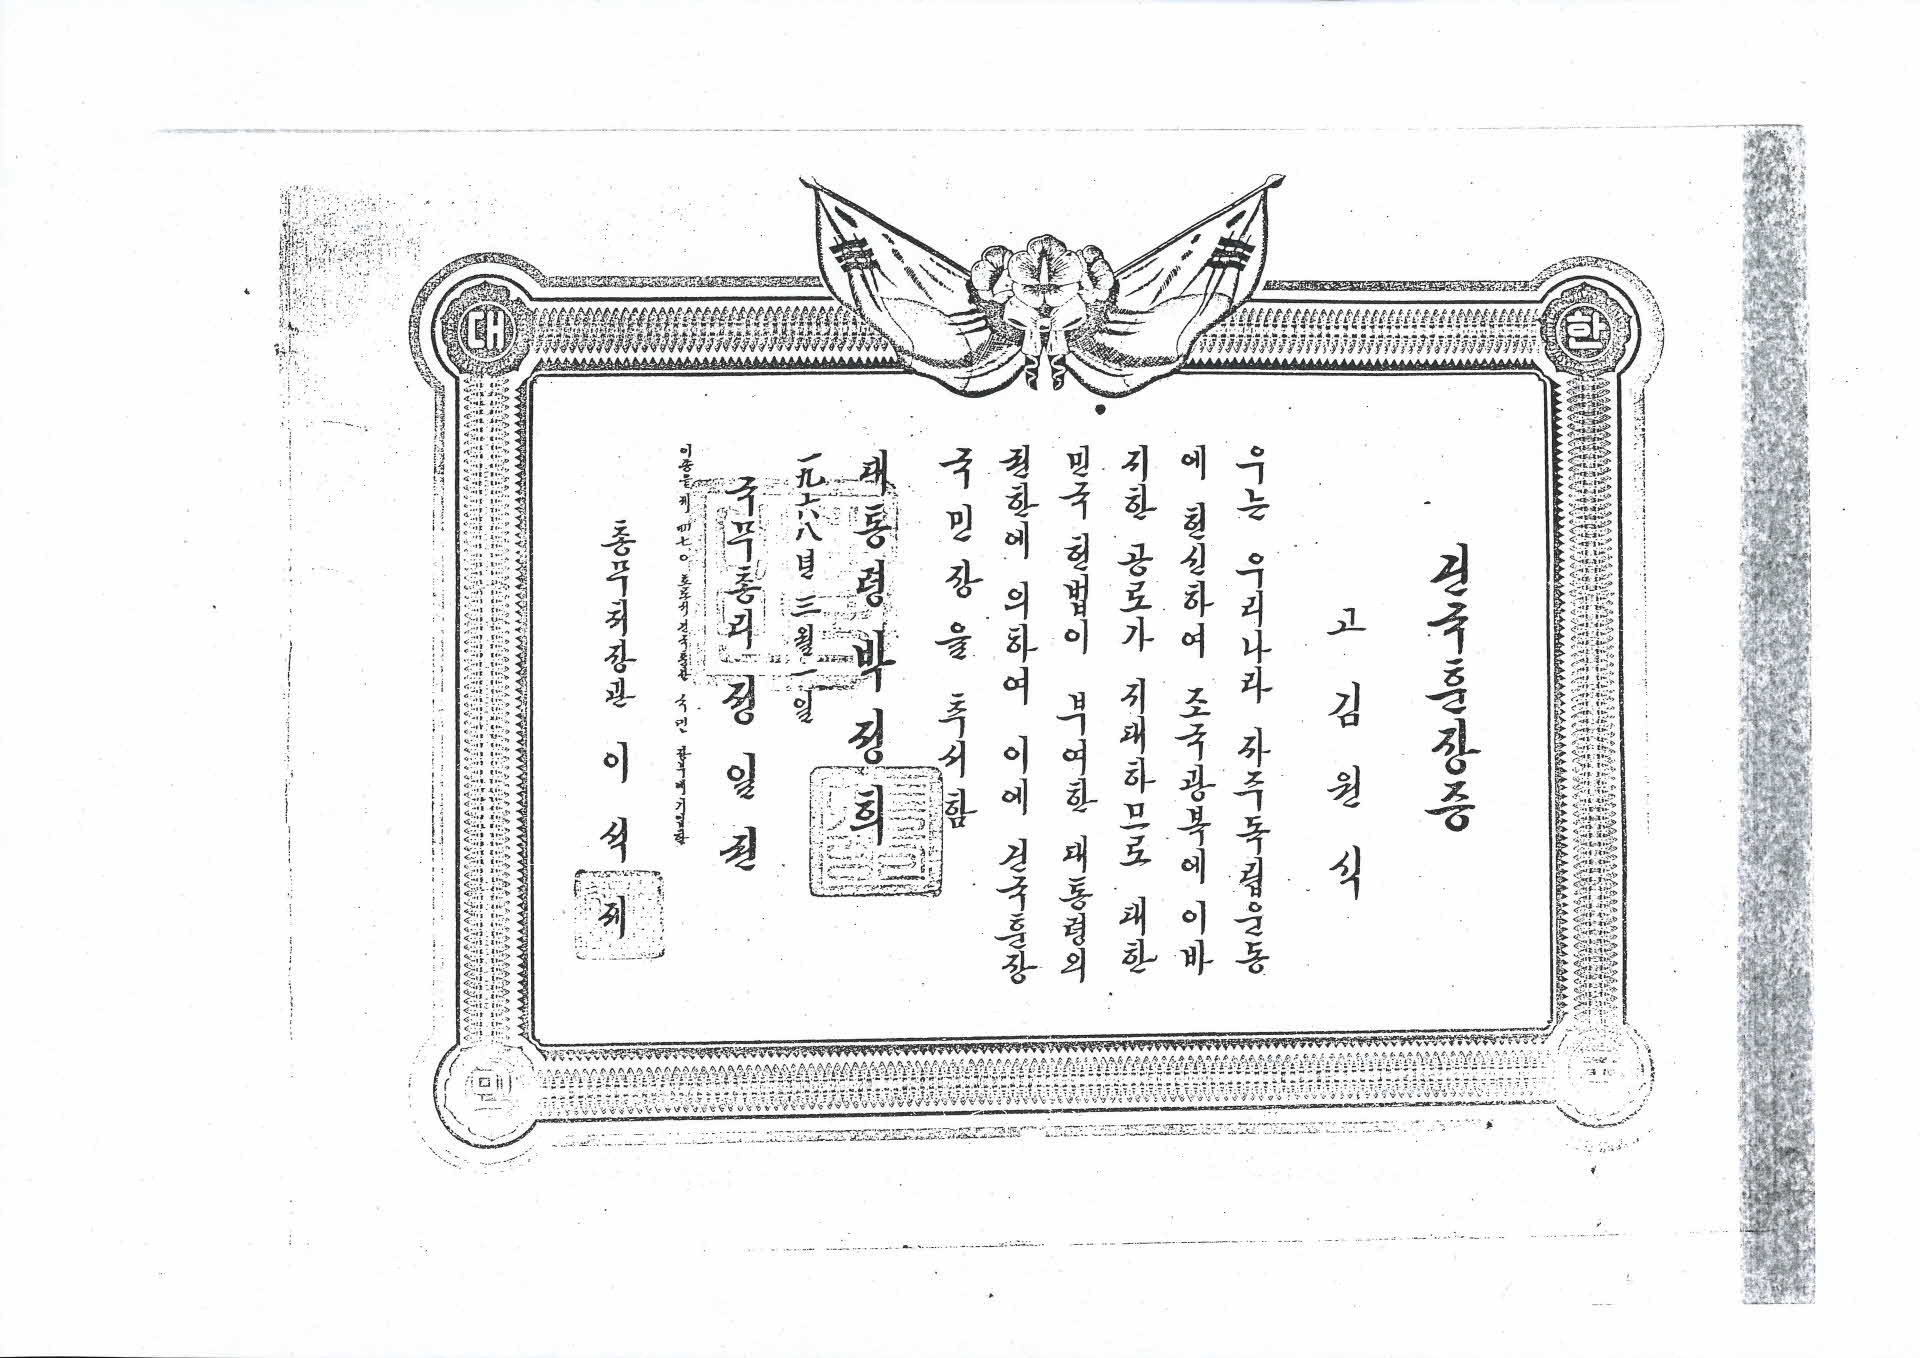 대 한 민 국
건국훈장증
고 김 원 식
우는 우리나라 자주독립운동
에 헌신하여 조국광복에 이바
지한 공로가 지대하므로 대한
민국 헌법이 부여한 대통령의
권한에 의하여 이에 건국훈장
국민장을 추서함
대통령 박정희
一九六八년 三월 一일
국무총리 정일권
이증을 제 四七○ 호로서 건국훈장 국민장부에 기입함
총무처장관 이석제